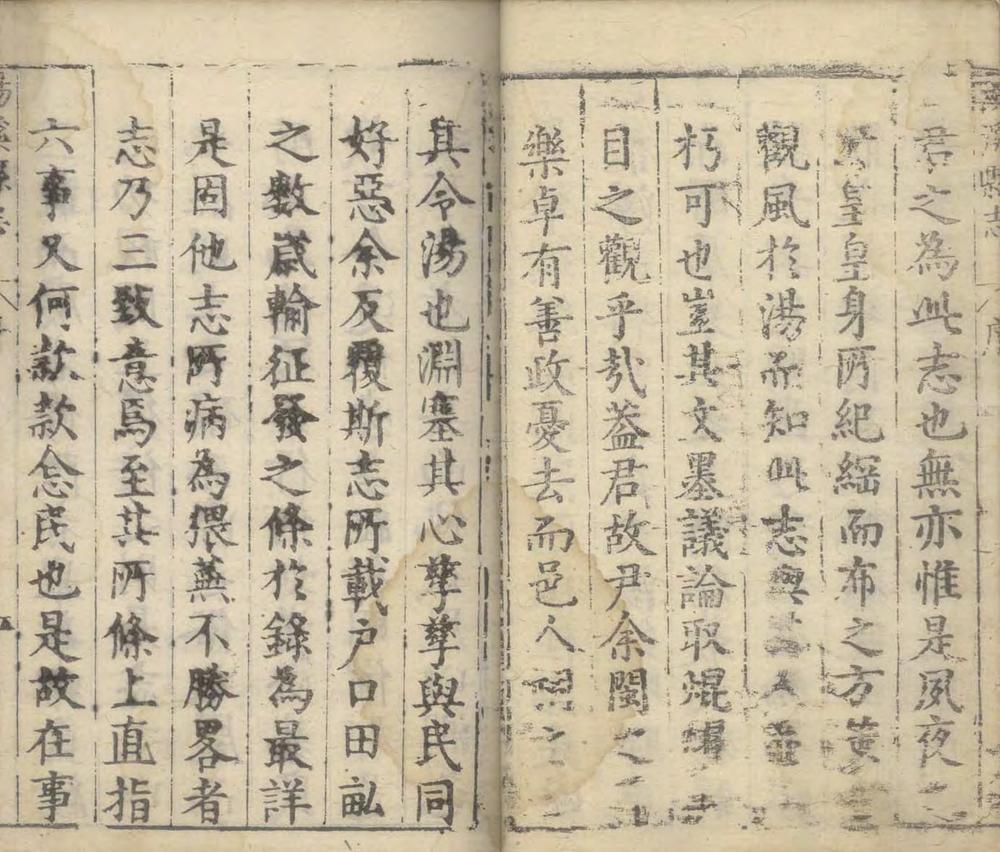 君之為此志也無亦惟是夙夜之
皇皇身所紀綱而布之方
觀風於湯而知此志與人
朽可也豈其文墨議論取焜耀
目之觀乎哉蓋君故尹余閩之
樂卓有善政憂去而邑人
其令湯也淵塞其心孳孳與民同
好惡余反覆斯志所載户口田畝
之數歲輸征發之條於錄為最詳
是固他志所病為猥蕪不勝畧者
志乃三致意焉至其所條上直指
六事又何款款念民也是故在事